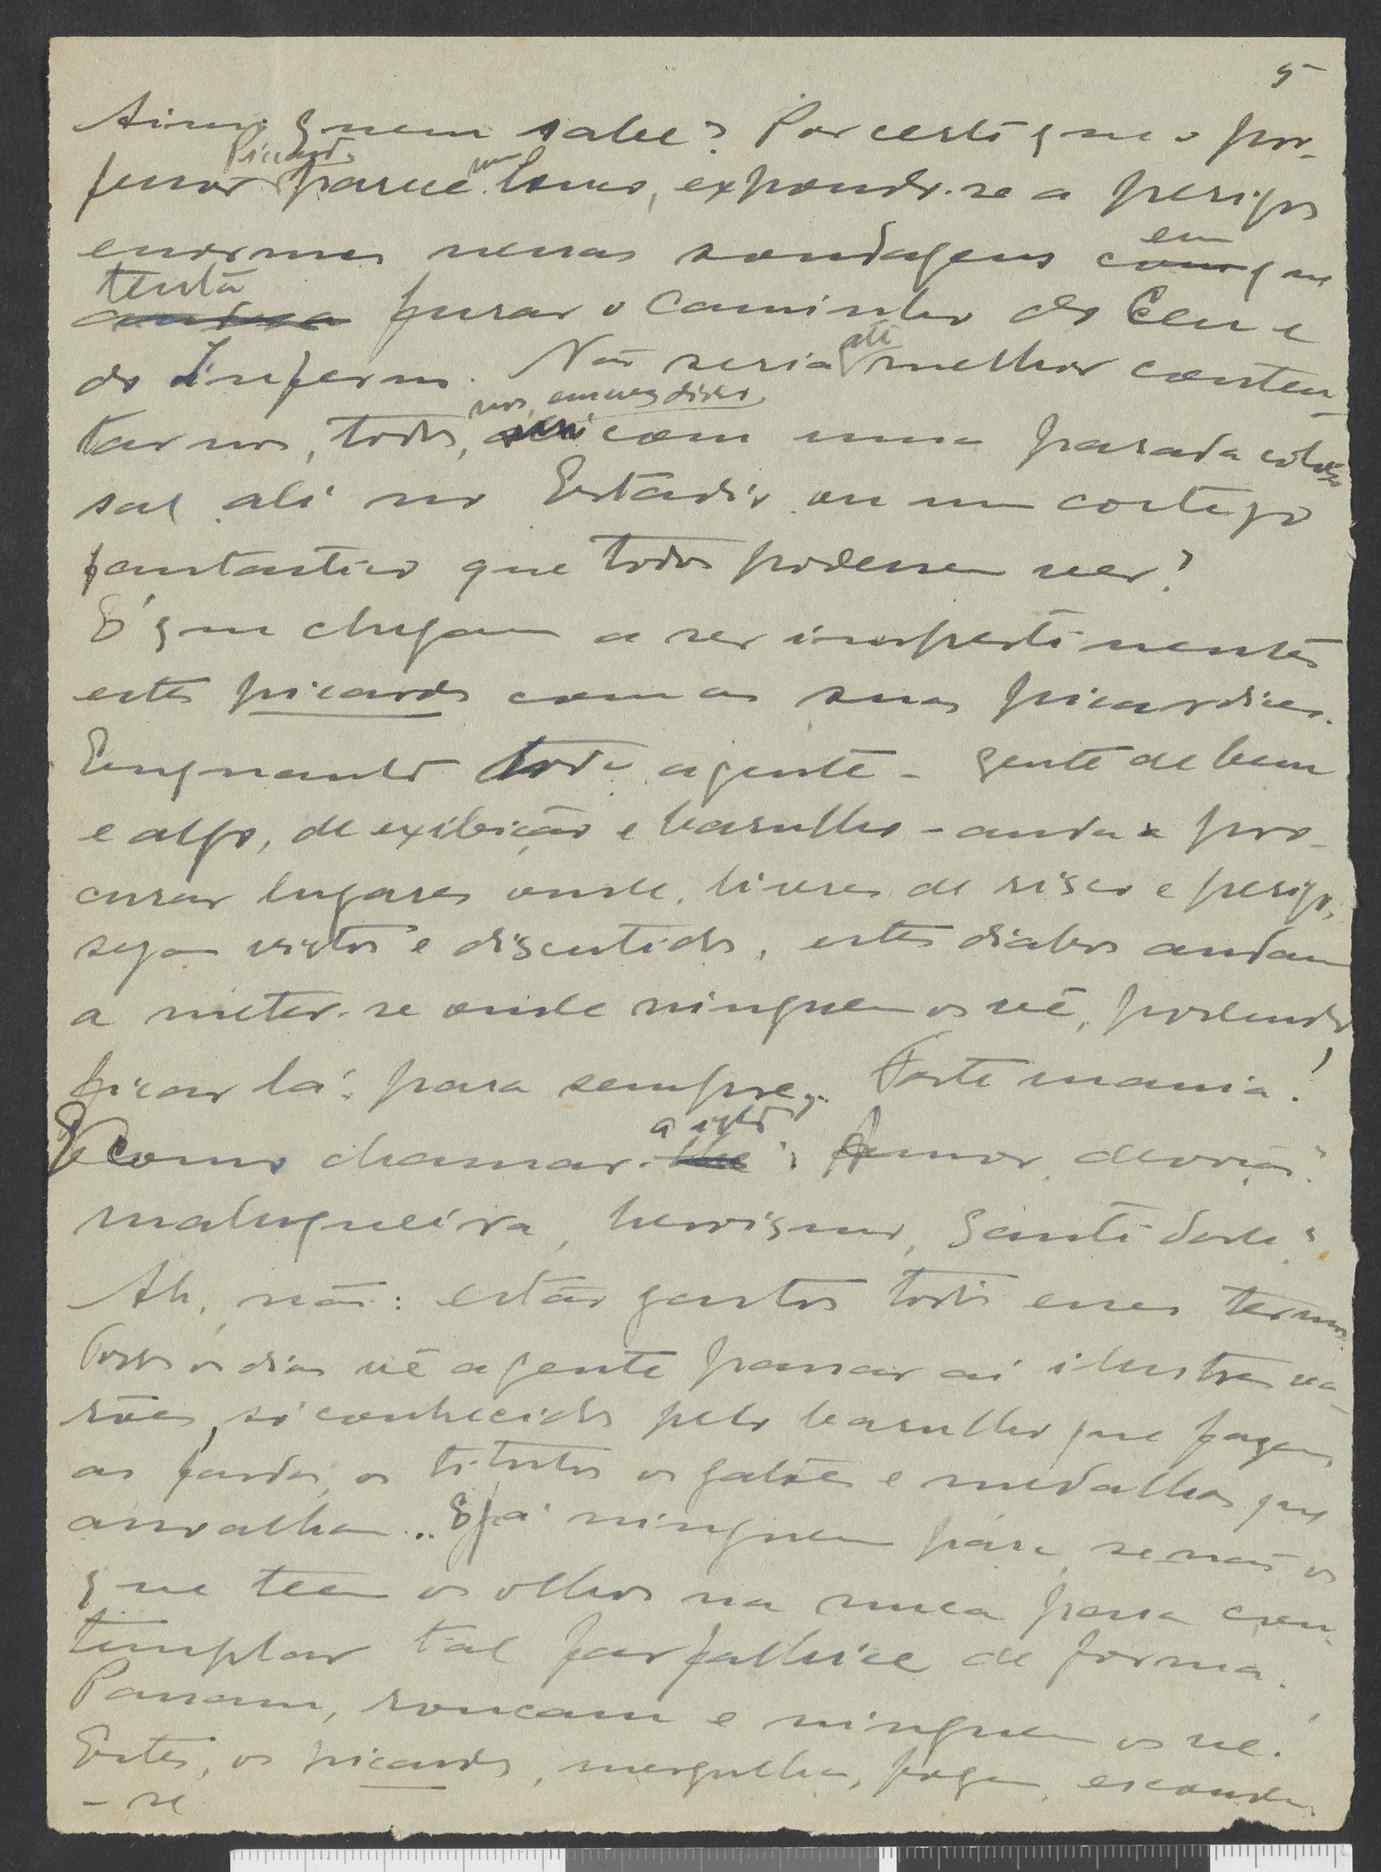 5
quem sabe? Por certo que o pro-
fessor Picard parece um louco, expondo-se a perigos
enormes nessas sondagens em que
tenta furar o caminho do Ceu e
do Inferno. Não seria até melhor conten-
tar-nos, todos, com uma parada colos-
sal ali no Estadio ou um cortejo
fantastico que todos podessem ver?
E' que chegam a ser impertinentes
estes picards com as suas picardias.
Enquanto toda a gente - gente de bem
e algo, de exibição e barulho - anda a pro-
curar lugares onde, livres de risco e perigo,
sejam vistos e discutidos, estes diabos andam
a meter-se onde ninguem os vê, podendo
ficar lá para sempre. Forte mania!
E como chamar a isto? Amor, devoção?
maluqueira, heroismo, Santidade?
Ah, não: estão gastos todos esses termos.
Todos os dias vê a gente passar aí ilustres va-
rões, só conhecidos pelo barulho que fazem,
as fardas, os titulos os galões e medalhas que
 E já ninguem pára, senão os
que teem os olhos na nuca para con-
templar tal farfalhice de forma.
Passam, roncam e ninguem os vê!
Estes, os picards, mergulham, fogem, escondem
-se